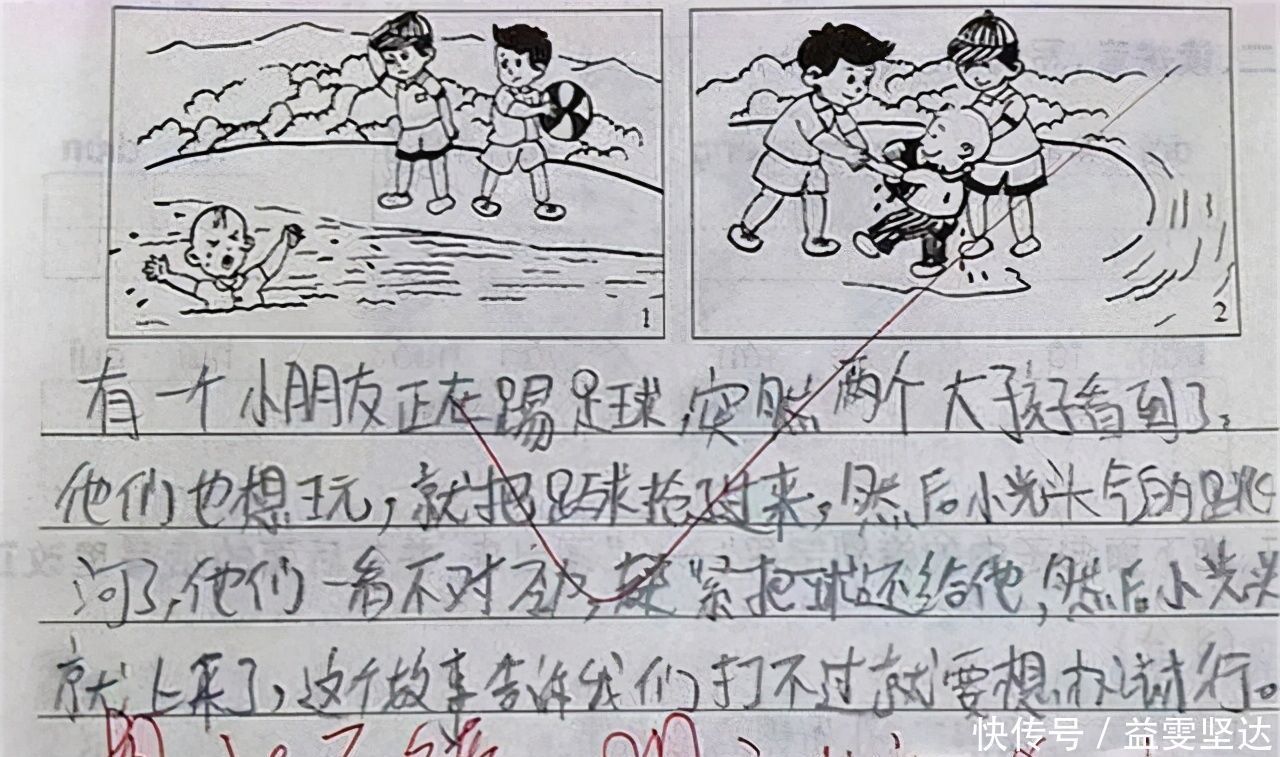 1
2
有一个小朋友正在踢足球,突然两个大孩子看到了,
他们也想玩,就把足球抢过来,然后小光头气的跳
河了,他们一看不对,紧把球还给他,然后小光头
就上来了,这个故事告诉我们打不过就要想办法才行。
快传号 / 益雯坚达